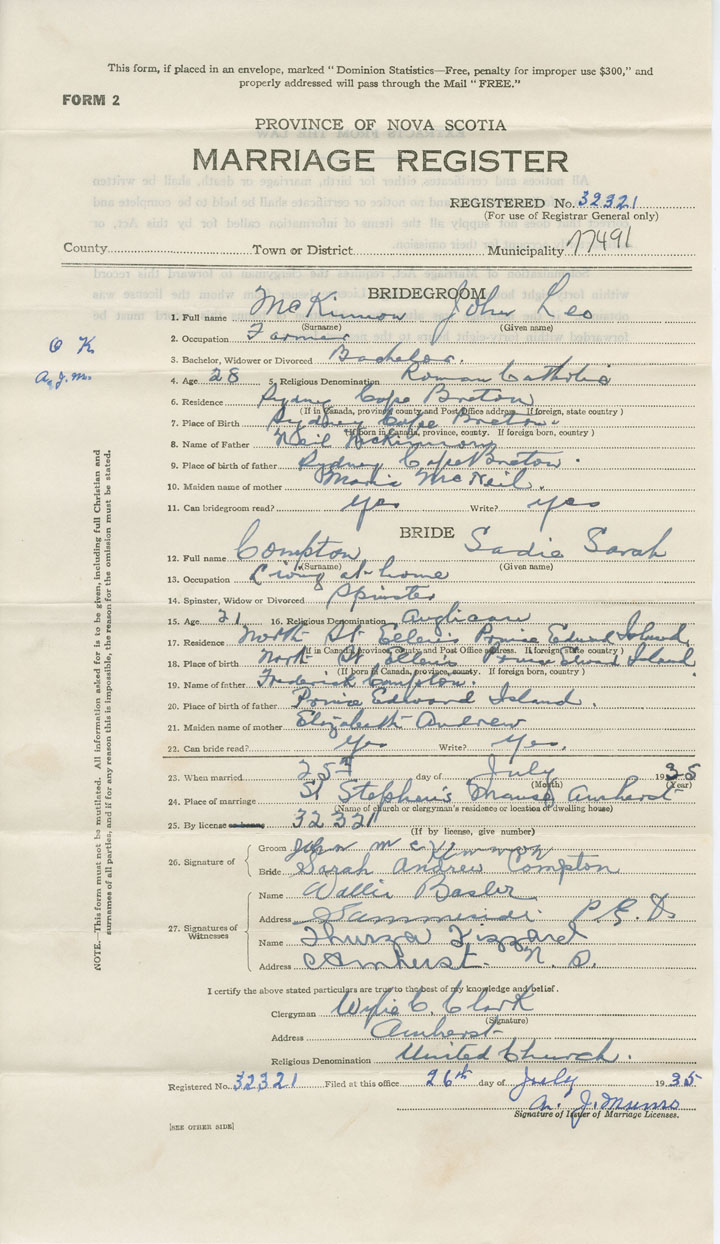 This form, if placed in an envelope, marked "Dominion Statistics—Free, penalty for improper use $300," and
properly addressed will pass through the Mail "FREE."
FORM 2
PROVINCE OF NOVA SCOTIA
MARRIAGE REGISTER
REGISTERED No. 32321
(For use of Registrar General only)
County Town or District Municipality 77491
BRIDEGROOM
1. Full name McKinnon John Leo
(Surname) (Given name)
2. Occupation Farmer
O K.
3. Bachelor, Widower or Divorced Bachelor.
A. J. M.
4. Age 28 5. Religious Denomination Roman Catholic
6. Residence Sydney Cape Breton
(If in Canada, province, county and Post Office address. If foreign, state country)
7. Place of Birth Sydney Cape Breton.
(If born in Canada, province, county. If foreign born, country)
8. Name of Father Neil McKinnon
9. Place of birth of father Sydney Cape Breton.
10. Maiden name of mother McNeil.
11. Can bridegroom read? Yes Write? Yes
BRIDE
12. Full name Compton Sadie Sarah
(Surname) (Given name)
13. Occupation Living at home
14. Spinster, Widow or Divorced Spinster
15. Age 21 16. Religious Denomination Anglican
17. Residence North St Eleanis Prince Edward Island
(If in Canada, province, county, and Post Office address. If foreign, state country)
18. Place of birth North St Eleanis Prince Edward Island
(If born in Canada, province, county. If foreign born, country)
19. Name of father Frederick Compton.
20. Place of birth of father Prince Edward Island.
21. Maiden name of mother Elizabeth Andrew
22. Can bride read? Yes Write? Yes.
23. When married 25th day of July 1935
(Month) (Year)
24. Place of marriage St Stephen's Manse Amherst
(Name of church or clergyman's residence or location of dwelling house)
25. By license or banns 32321
(If by license, give number)
26. Signature of Groom John McKinnon
Bride Sarah Andrew Compton
27. Signatures of Witnesses
Name Wallis Basler
Address P.E.I.
Name Thurza Fizzard
Address Amherst. N. S.
I certify the above stated particulars are true to the best of my knowledge and belief.
Clergyman Wylie C. Clark
(Signature)
Address Amherst
Religious Denomination United Church.
Registered No. 32321 Filed at this office 26th day of July 1935
A. J. Munro
Signature of Issuer of Marriage Licenses.
[SEE OTHER SIDE]
NOTE.—This form must not be mutilated. All information asked for is to be given, including full Christian and
surnames of all parties, and if for any reason this is impossible, the reason for the omission must be stated.